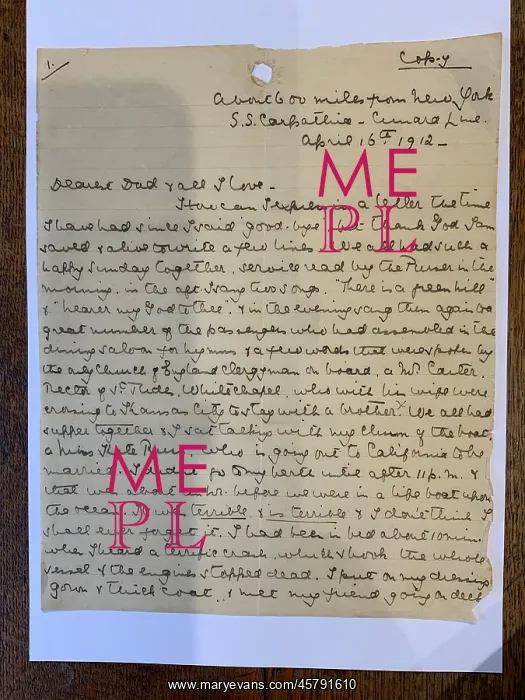 1.
Copy
About 600 miles from New York
S.S. Carpathia - Cunard Line.
April 16th 1912 -
Dearest Dad & all I love -
How can I express in a letter the time
I have had since I said good-bye but thank God I am
saved & alive to write a few lines. We all had such a
happy Sunday together, service read by the Purser in the
morning, in the aft. I sang two songs. "There is a green hill"
& "nearer my God to Thee", & in the evening sang them again to a
great number of the passengers who had assembled in the
dining saloon for hymns & a few words that were spoken by
the only Church of England Clergyman on board, a Mr. Carter.
Rector of St. Jude's, Whitechapel, who with his wife were
crossing to Kansas City to stay with a brother. We all had
supper together & I sat talking with my chum of the boat,
a Miss Kate who is going out to California to be
married. I didn't go to my berth until after 11 p.m. &
that was about hr. before we were in a life boat upon
the ocean. It was terrible & is terrible & I don't think I
shall ever forget it. I had been in bed about 10 min.
when I heard a terrific crash, which shook the whole
vessel & the engines stopped dead. I put on my dressing
gown & thick coat, & met my friend going on deck
ME
PL
ME
PL
www.maryevans.com/45791610